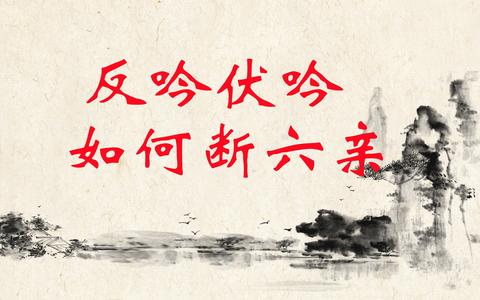 反吟伏吟
如何断六亲